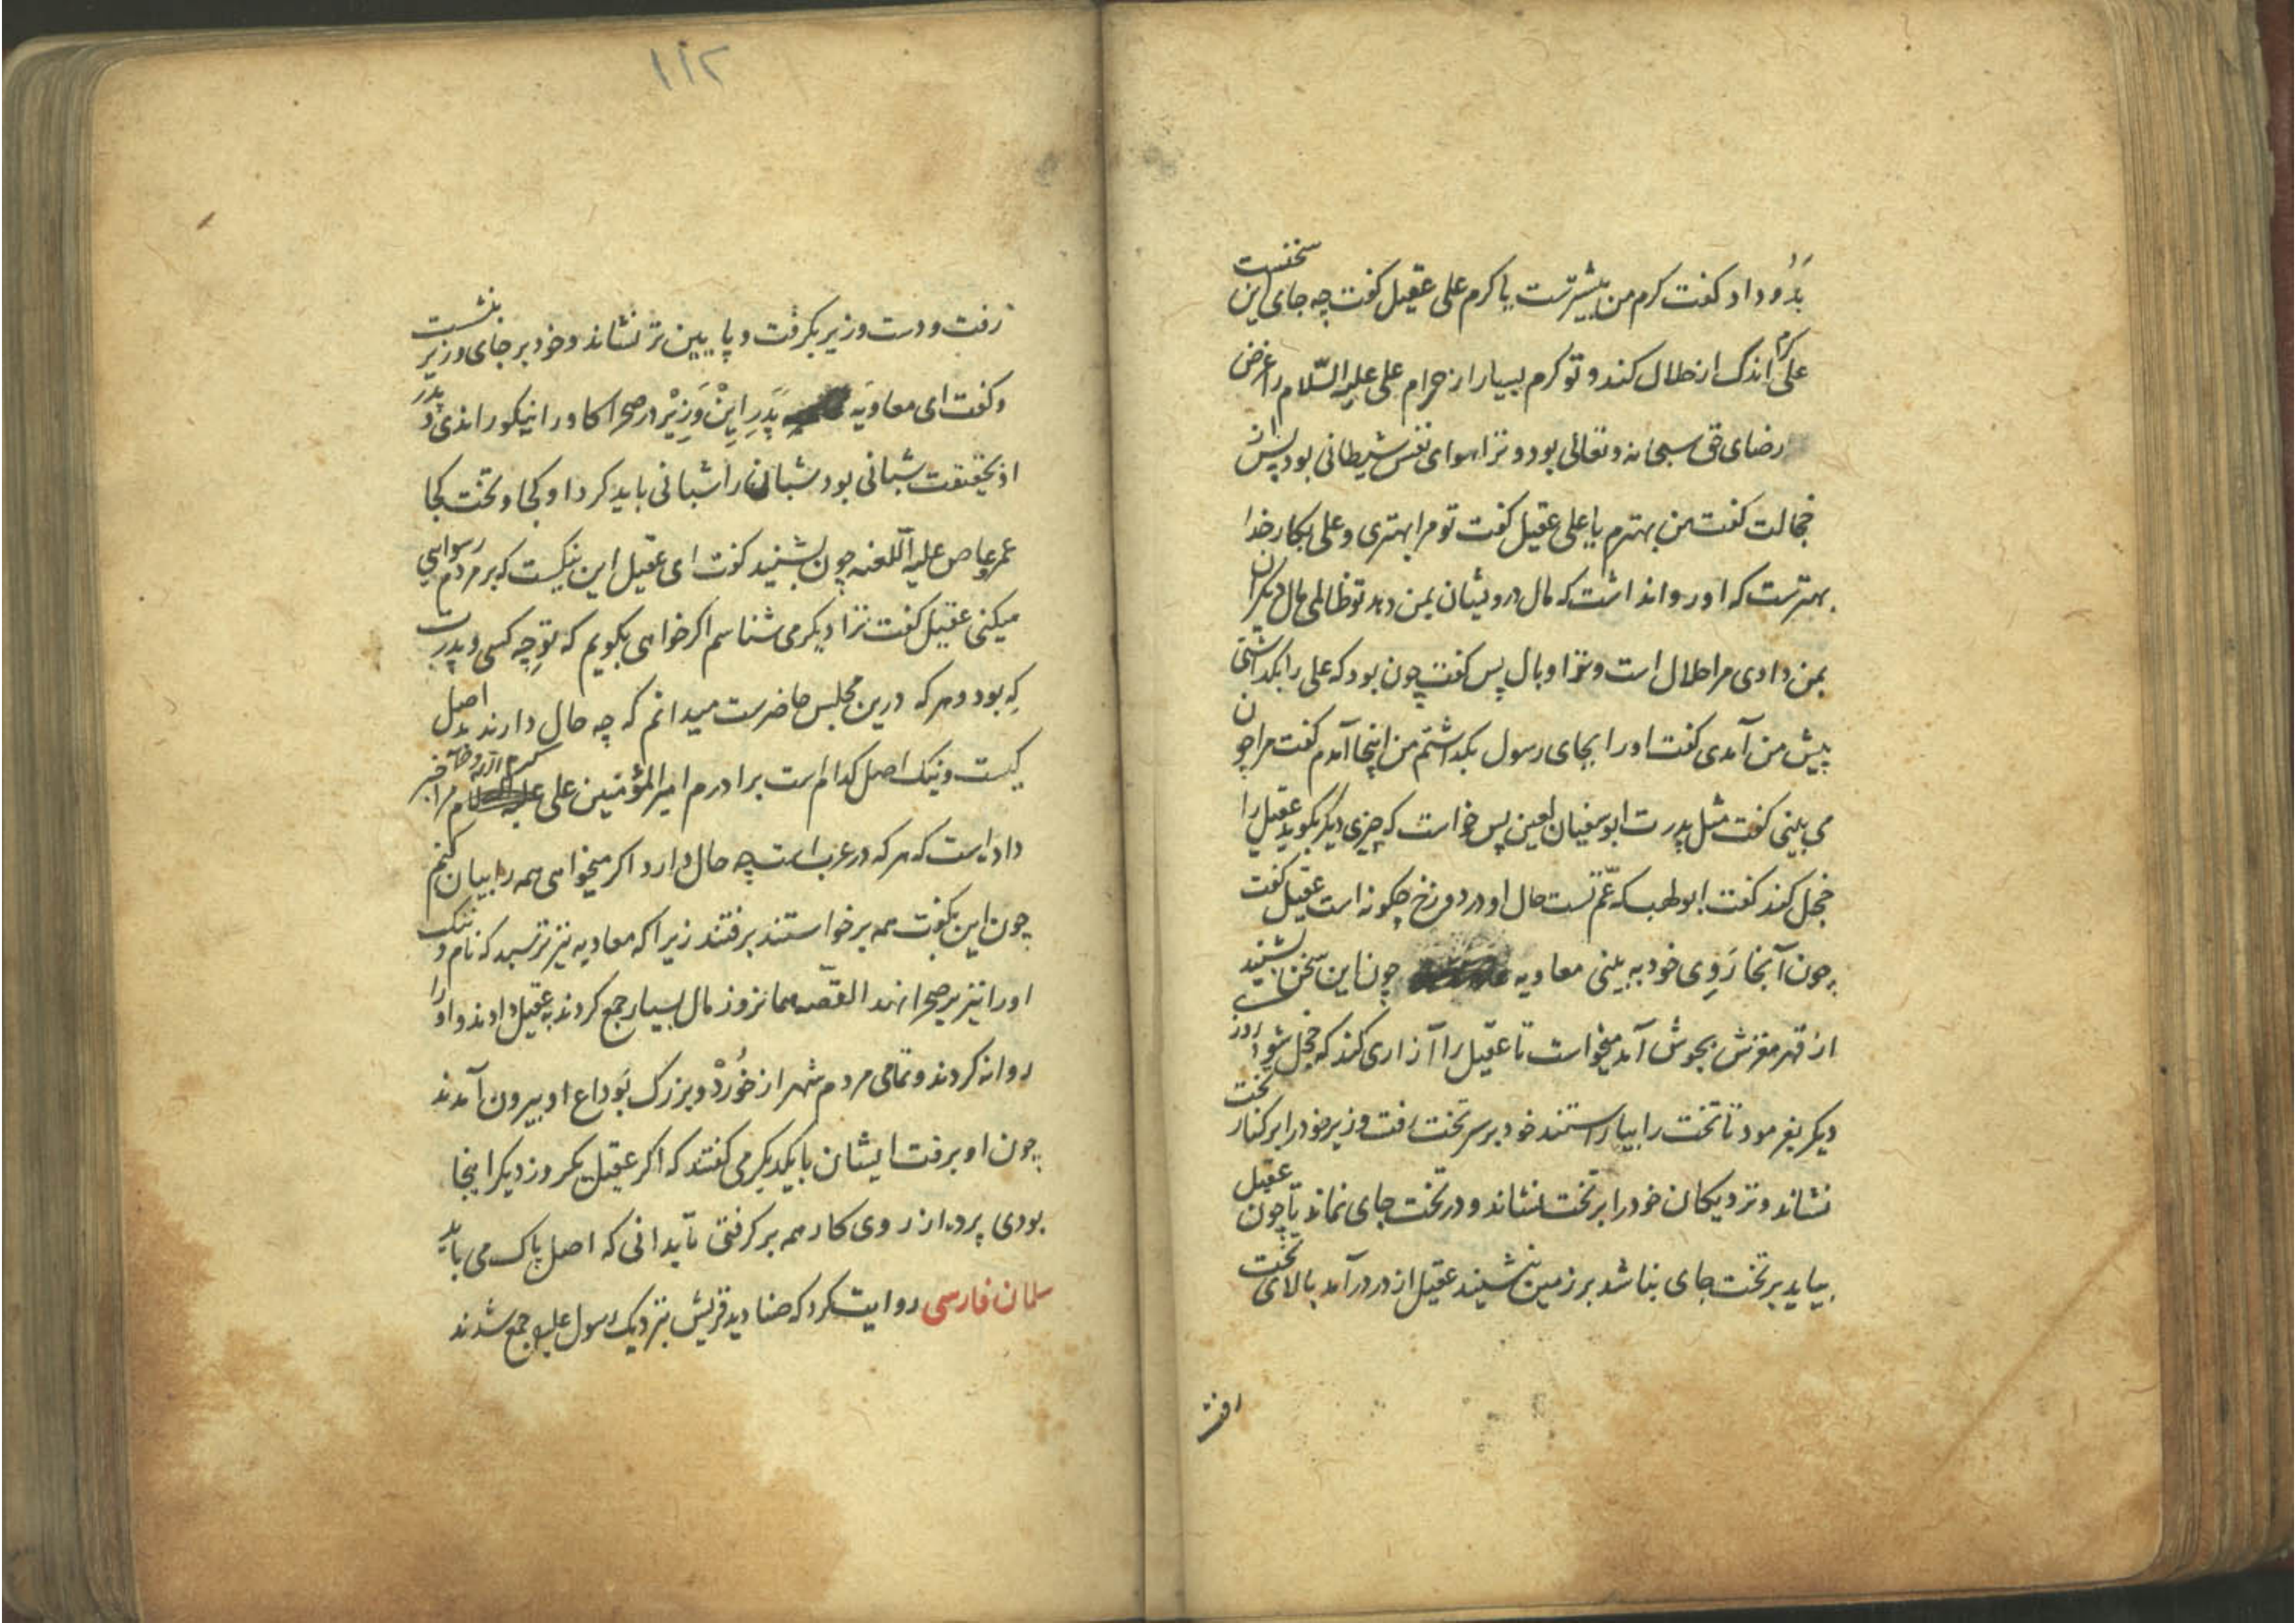 بدو داد گفت کرم من بیشترست یا کرم علی عقیل گفت چه جای این سخنست
کرم علی اندک از حلال کند و تو کرم بسیار از حرام علی علیه السّلام را غرض
رضای حق سبحانه و تعالی بود و ترا هوای نفس شیطانی بود پس از
خجالت گفت من بهترم یا علی عقیل گفت تو مرا بهتری و علی بکار خدا
بهترست که او روا نداشت که مال درویشان بمن دهد تو ظالمی مال دیگران
بمن دادی مرا حلال است و ترا وبال پس گفت چون بود که علی را بگذاشتی
پیش من آمدی گفت او را بجای رسول بگذاشتم من اینجا آمدم گفت مرا چون
می بینی گفت مثل پدرت ابوسفیان لعین پس خواست که چیزی دیگر بگوید عقیل را
خجل کند گفت ابولهب که عمّ تست حال او در دوزخ چگونه است عقیل گفت
چون آنجا روی خود به بینی معاویه چون این سخن بشنید
از قهر مغزش بجوش آمد میخواست تا عقیل را آزاری کند که خجل شود روز
دیگر بفرمود تا تخت را بیاراستند خود بر سر تخت رفت وزیر خود را بر کنار تخت
نشاند و نزدیکان خود را بر تخت بنشاند و در تخت جای نماند تا چون عقیل
بیاید بر تخت جای نباشد بر زمین بنشیند عقیل از در درآمد بالای تخت
رفت
۱۱۲
رفت و دست وزیر بگرفت و پایین تر نشاند و خود بر جای وزیر بنشست
و گفت ای معاویه پدر این وزیر در صحرا گاو را نیکو راندی و پدر
او بحقیقت شبانی بود شبان را شبانی باید کرد او کجا و تخت کجا
عمرو عاص علیه اللعنه چون بشنید گفت ای عقیل این نیکست که بر مردم رسوایی
میکنی عقیل گفت ترا دیگر می شناسم اگر خواهی بگویم که تو چه کسی و پدرت
که بود و هر که درین مجلس حاضرست میدانم که چه حال دارند بد اصل
کیست و نیک اصل کدام است برادرم امیرالمؤمنین علی مرا خبر
داده است که هر که در عرب است چه حال دارد اگر میخواهی همه را بیان کنم
چون این بگفت همه برخواستند برفتند زیرا که معاویه نیز ترسید که نام و ننگ
او را نیز بر صحرا نهد القصه همانروز مال بسیار جمع کردند به عقیل دادند و او را
روانه کردند و تمامی مردم شهر از خُورْد و بزرگ بوداع او بیرون آمدند
چون او برفت ایشان بایکدیگر می گفتند که اگر عقیل یکروز دیگر اینجا
بودی پرده از روی کار همه برگرفتی تا بدانی که اصل پاک می باید
سلمان فارسی روایت کرد که صنادید قریش بنزدیک رسول علیه جمع شدند